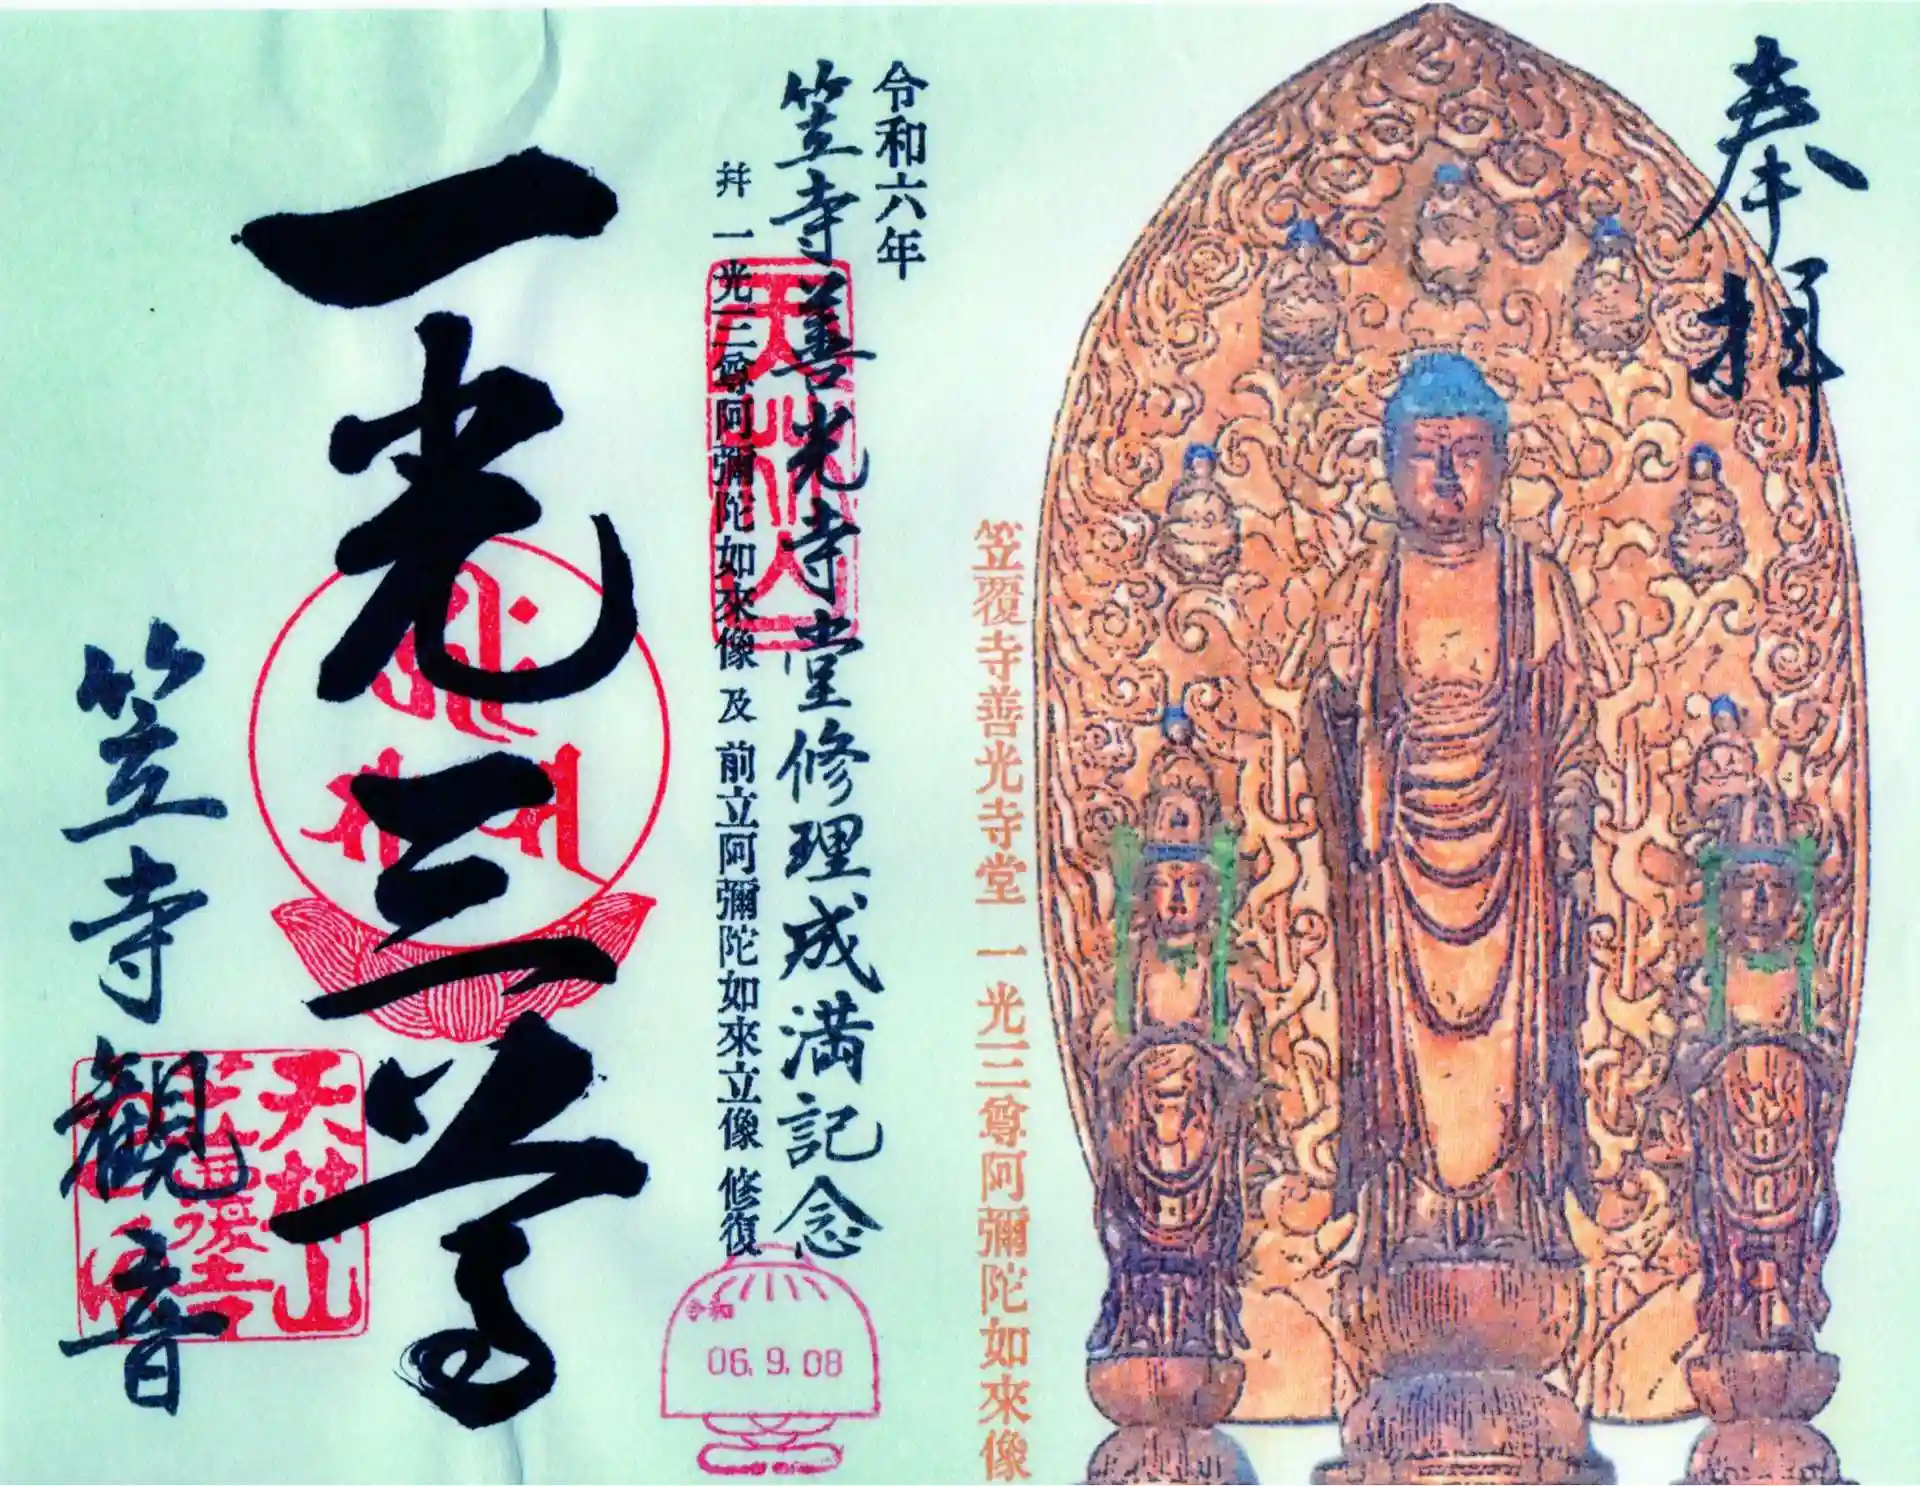 奉拝
笠覆寺善光寺堂 一光三尊阿彌陀如來像
令和六年
笠寺善光寺堂修理成満記念
并 一光三尊阿彌陀如來像 及 前立阿彌陀如來立像 修復
天林山
令和
06.9.08
一光三尊
天林山
笠寺観音